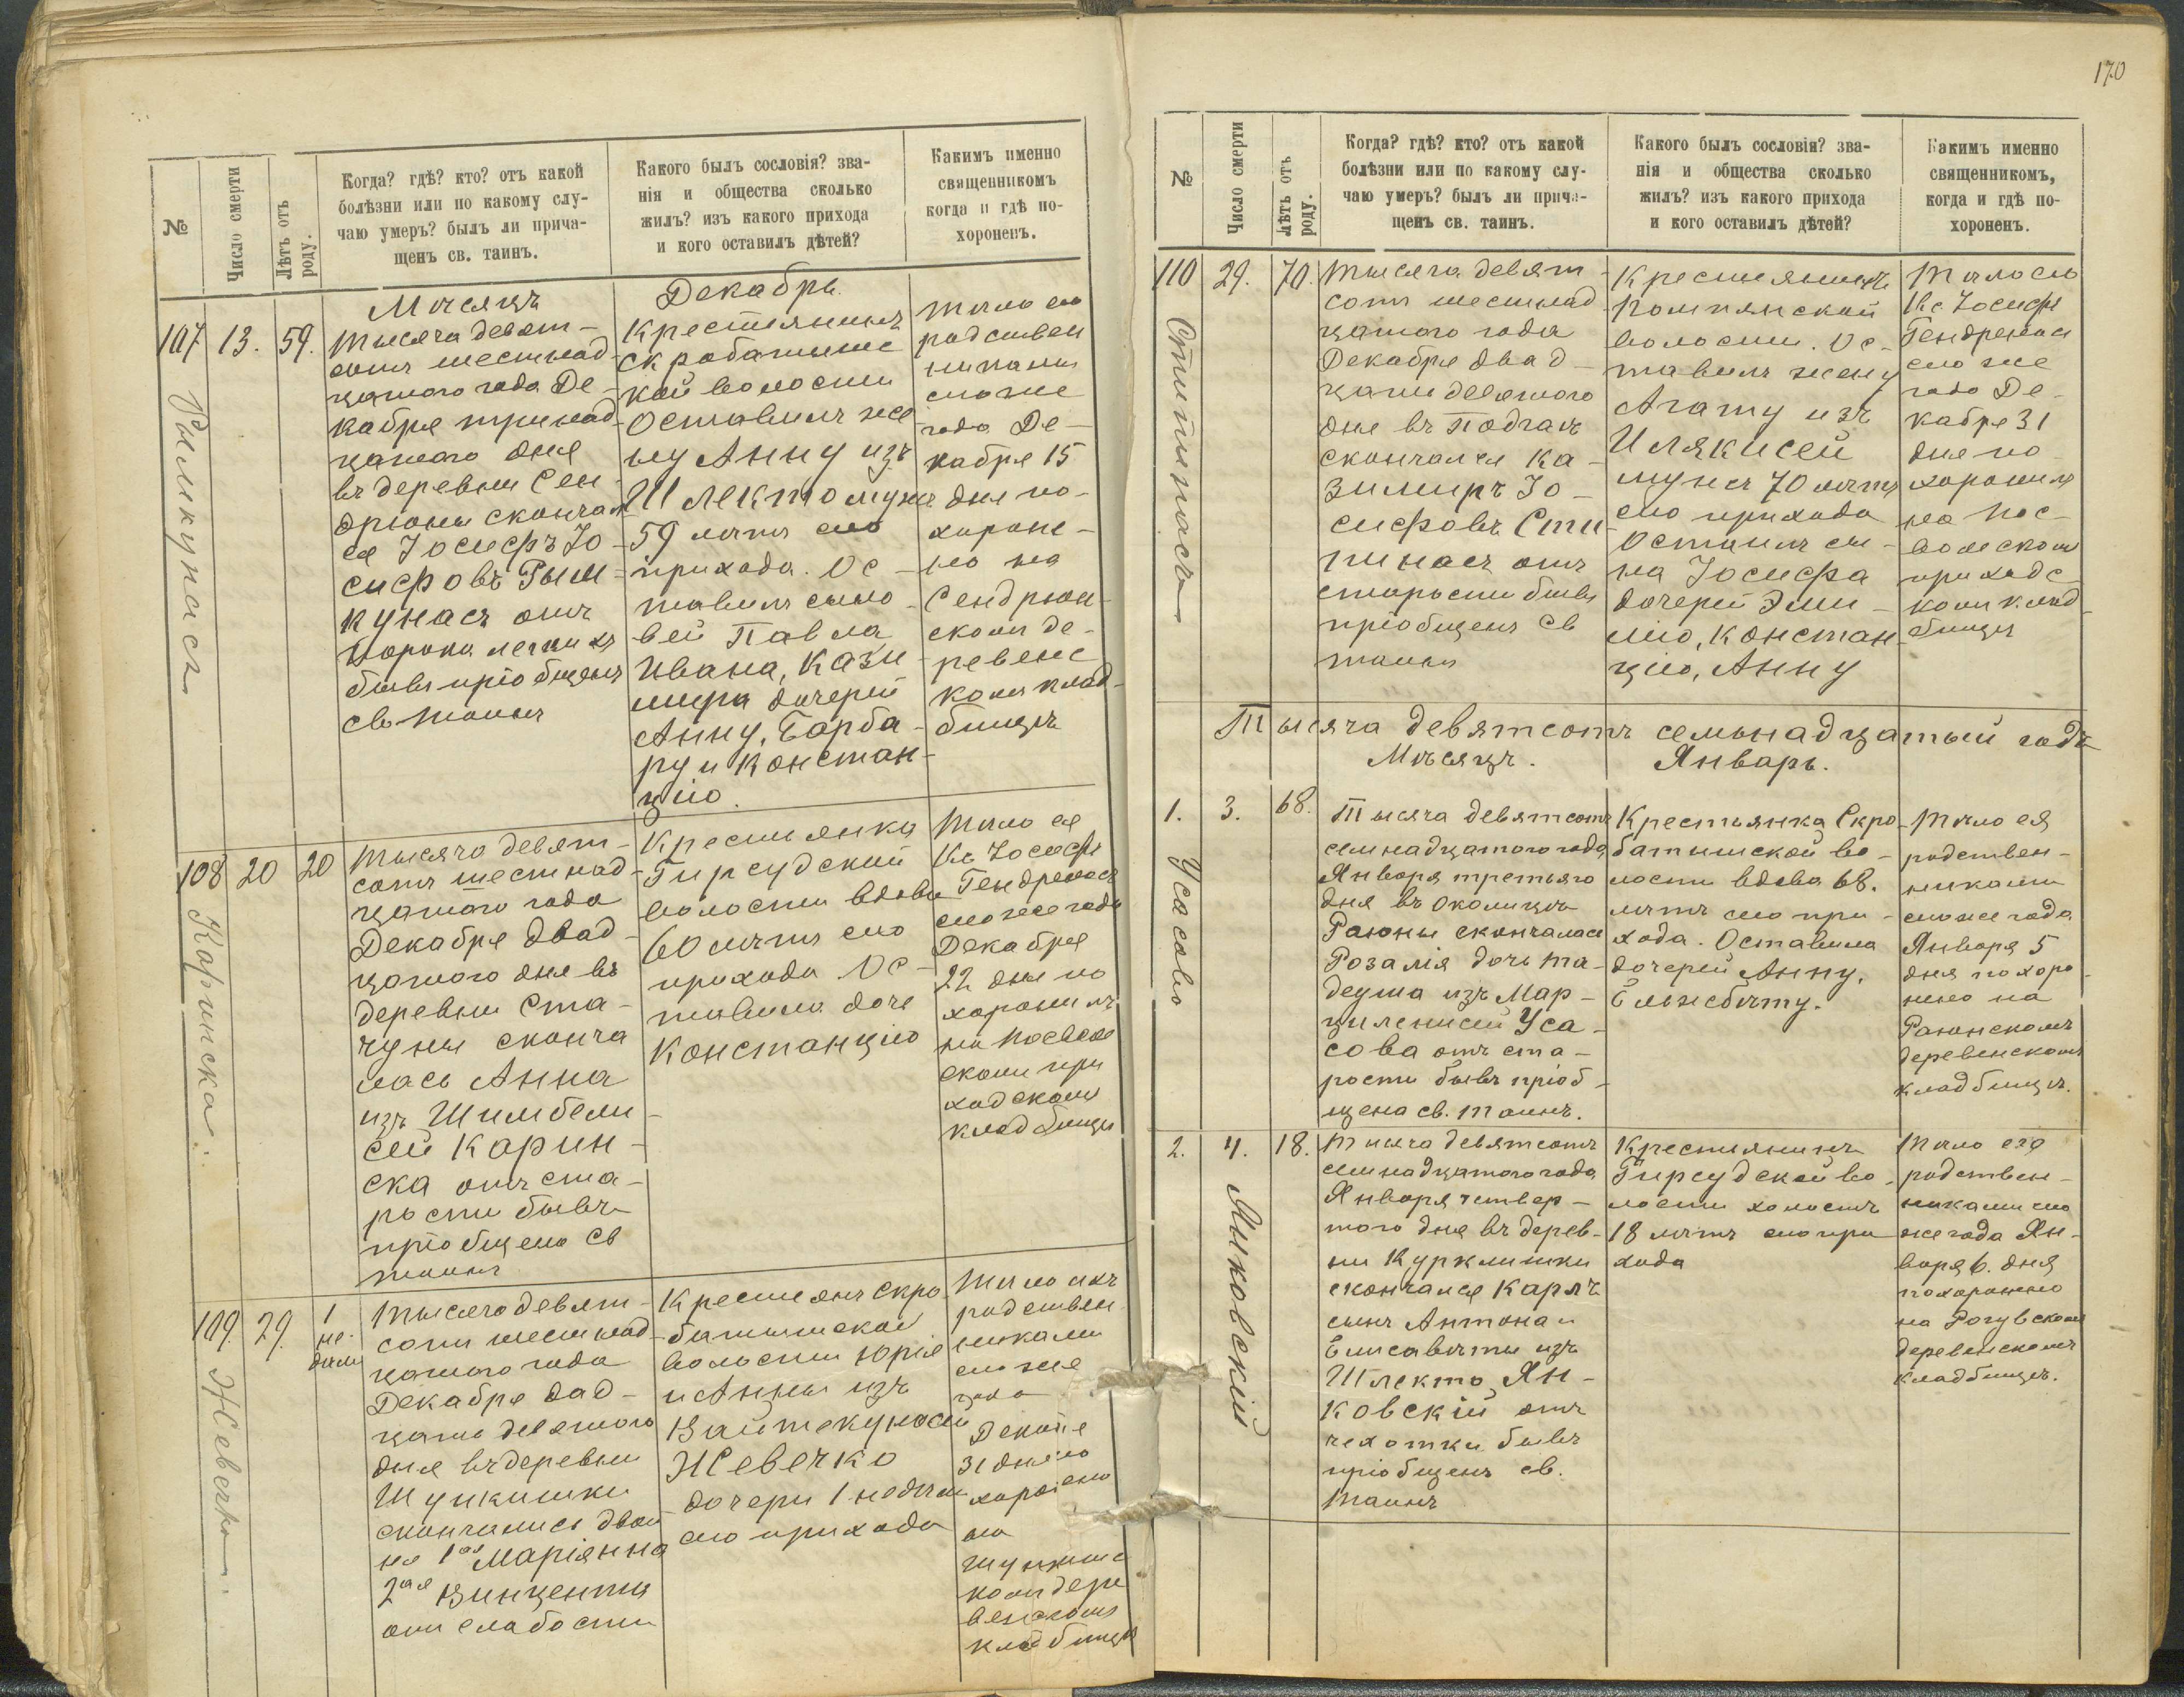 170
№
Число смерти
Лѣтъ отъ роду.
Когда? гдѣ? кто? отъ какой
болѣзни или по какому слу-
чаю умеръ? былъ ли прича-
щенъ св. таинъ.
Какого былъ сословія? зва-
нія и общества сколько
жилъ? изъ какого прихода
и кого оставилъ дѣтей?
Какимъ именно
священникомъ
когда и гдѣ по-
хороненъ.
Мѣсяцъ Декабрь.
107 13. 59.
Рымкунасъ
Тысяча девят-
сотъ шестнад-
цатого года Де-
кабря тринад-
цатого дня
въ деревни Сен-
дрюны скончал-
ся Іосифъ Іо-
сифовъ Рым-
кунасъ отъ
порока легкихъ
бывъ пріобщенъ
св. таинъ
Крестянинъ
Скробатишс
кой волости
Оставилъ же-
ну Анну изъ
Шлекто мужъ
59 лѣтъ сего
прихода. Ос-
тавилъ сыно-
вей Павла
Ивана, Кази-
мира дочерей
Анну, Барба-
ру и Констан-
цію.
Тѣло его
родствен
никами
сего же
года Де-
кабря 15
дня по-
хороне-
но на
Сендрюн-
скомъ де-
ревенс
комъ клад-
бищѣ
108 20 20
Каринска.
Тысяча девят-
сотъ шестнад-
цатого года
Декабря двад-
цатого дня въ
деревни Ста-
чуны сконча
лась Анна
изъ Шимбели-
сей Карин-
ска отъ ста-
рости бывъ
пріобщена св
таинъ
Крестьянка
Гирсудской
волости вдова
60 лѣтъ сего
прихода Ос-
тавила дочь
Констанцію
Тѣло ея
Кс Іосифъ
Гендреласъ
сего же года
Декабря
22 дня по
хоронилъ
на Посвол
скомъ при
ходскомъ
кладбищѣ
109. 29. 1 не- дѣли
Жевечко.
Тысяча девят-
сотъ шестнад-
цатого года
Декабря дад-
цать девятого
дня въ деревни
Шункишки
скончались двой
ня 1ая Маріянна
2ая Винцентія
отъ слабости
Крестянъ Скро-
батишской
волости Юрія
и Анны изъ
Вайтекунасей
Жевечко
дочери 1 недѣли
сего прихода
Тѣло ихъ
родствен
никами
сего же
года
31 дня по
на
комъ дере
венскомъ
кладбищѣ
№
Число смерти
Лѣтъ отъ роду.
Когда? гдѣ? кто? отъ какой
болѣзни или по какому слу-
чаю умеръ? былъ ли прича-
щенъ св. таинъ.
Какого былъ сословія? зва-
нія и общества сколько
жилъ? изъ какого прихода
и кого оставилъ дѣтей?
Какимъ именно
священникомъ,
когда и гдѣ по-
хороненъ.
110 29. 70.
Стипинасъ
Тысяча девят-
сотъ шестнад
цатого года
Декабря двад-
цать девятого
дня въ
скончался Ка-
зимиръ Іо-
сифовъ Сти-
пинасъ отъ
старости бывъ
пріобщенъ св
таинъ
Крестянинъ
Помпянской
волости. Ос-
тавилъ жену
Агату изъ
мужъ 70 лѣтъ
сего прихода
Оставилъ сы-
на Іосифа
дочерей Эми-
лію, Констан-
цію, Анну
Тѣло его
Кс Іосифъ
Гендреласъ
сего же
года Де-
кабря 31
дня по-
хоронилъ
на Пос-
вольскомъ
приходс-
комъ клад-
бищѣ
Тысяча девятсотъ семьнадцатый годъ
Мѣсяцъ. Январь.
1. 3. 68.
Усасово
Тысяча девятсотъ
семнадцатого года
Января третьяго
дня въ околицѣ
Раюны скончалася
Розалія дочь Та-
деуша изъ Мар-
цилениси Уса-
сова отъ ста-
рости бывъ пріоб-
щена св. таинъ.
Крестьянка Скро-
батишской во-
лости вдова 68.
лѣтъ сего при-
хода. Оставила
дочерей Анну,
Ельжбѣту.
Тѣло ея
родствен-
никами
сего же года
Января 5
дня похоро-
нено на
Раюнскомъ
деревенскомъ
кладбищѣ.
2. 4. 18.
Янковскій
Тысяча девятсотъ
семнадцатого года
Января четвер-
того дня въ дерев-
ни Курклишки
скончался Карлъ
сынъ Антона и
Елисавѣты изъ
Шлекто Ян-
ковскій отъ
чехотки бывъ
пріобщенъ св.
таинъ
Крестянинъ
Гирсудской во-
лости холостъ
18 лѣтъ сего при
хода
Тѣло его
родствен-
никами сего
же года Ян-
варя 6. дня
похоронено
на Рогувскомъ
деревенскомъ
кладбищѣ.